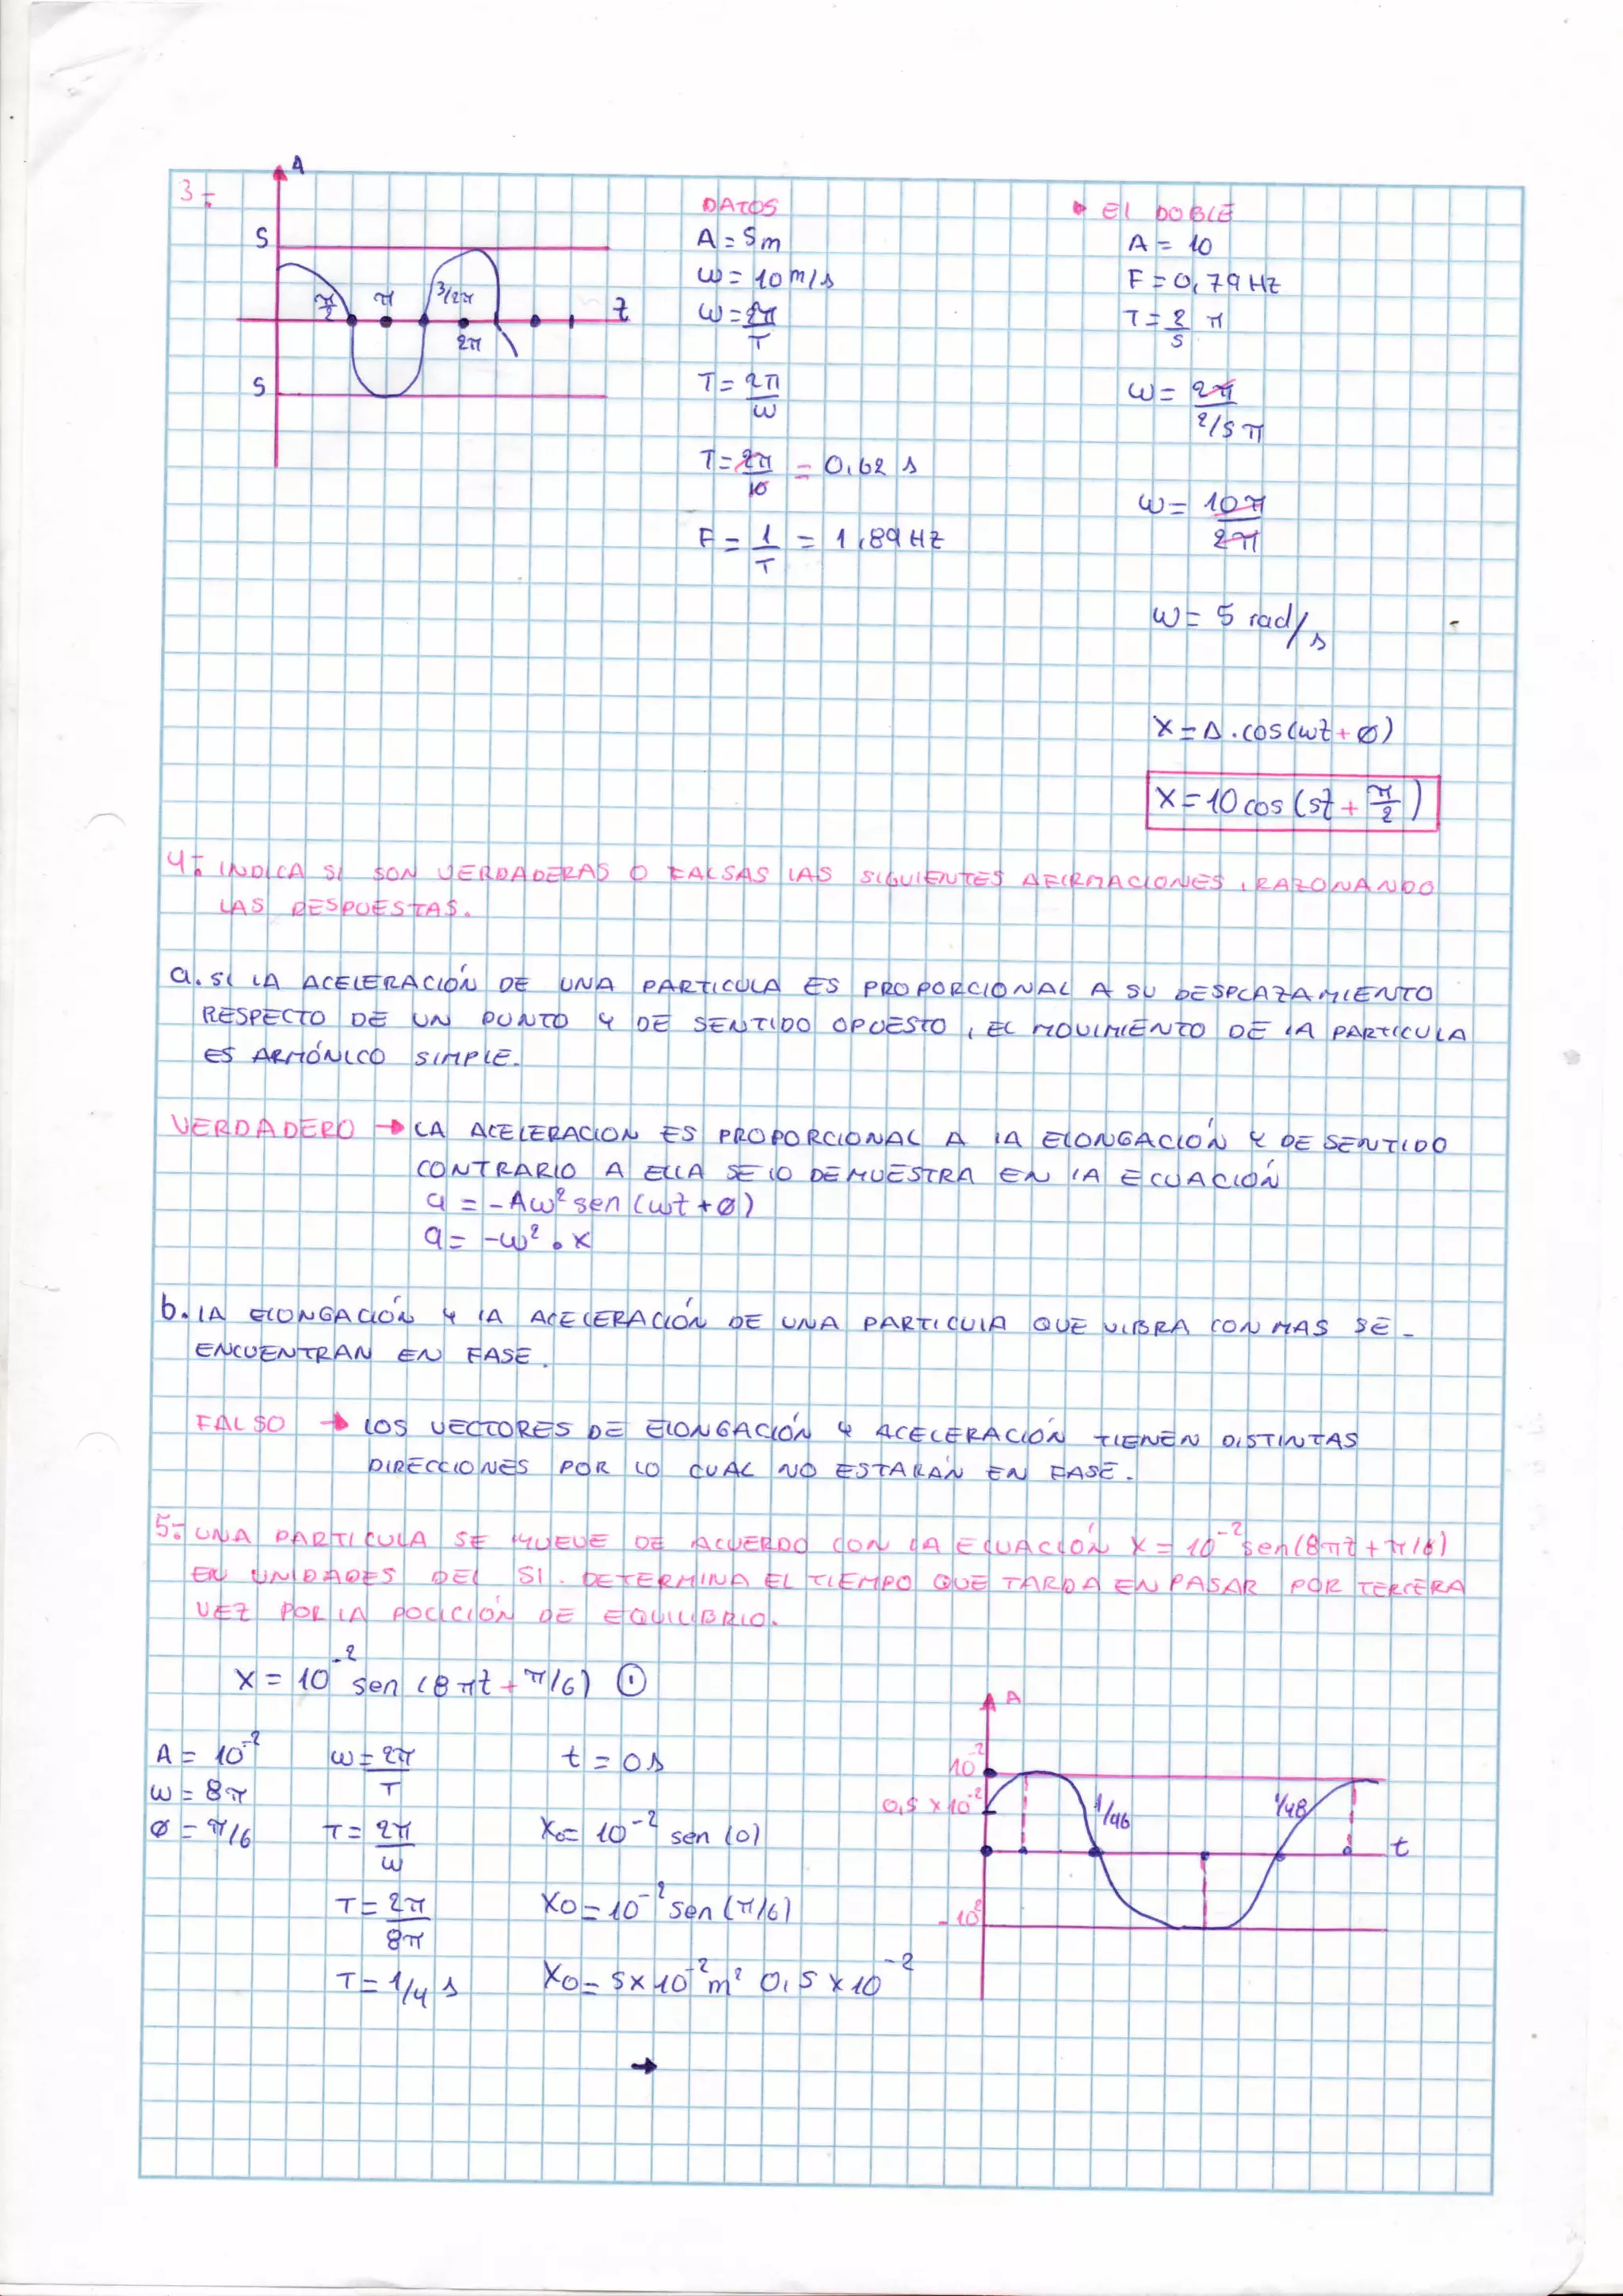 3-
A
5
5
π/2
π
3/2π
2π
t
DATOS
A = 5m
ω = 10 m/s
ω = 2π/T
T = 2π/ω
T = 2π/10 = 0,62 s
F = 1/T = 1,89 HZ
El DOBLE
A = 10
F = 0,79 HZ
T = 2/5 π
ω = 2π / 2/5 π
ω = 10π/2π
ω = 5 rad/s
X = A . cos(ωt + ø)
X = 10 cos (5t + π/2)
4- INDICA SI SON VERDADERAS O FALSAS LAS SIGUIENTES AFIRMACIONES, RAZONANDO
LAS RESPUESTAS.
a. SI LA ACELERACIÓN DE UNA PARTICULA ES PROPORCIONAL A SU DESPLAZAMIENTO
RESPECTO DE UN PUNTO Y DE SENTIDO OPUESTO, EL MOVIMIENTO DE LA PARTICULA
ES ARMÓNICO SIMPLE.
VERDADERO → LA ACELERACION ES PROPORCIONAL A LA ELONGACIÓN Y DE SENTIDO
CONTRARIO A ELLA SE LO DEMUESTRA EN LA ECUACIÓN
a = -Aω² sen (ωt + ø)
a = -ω² • x
b. LA ELONGACIÓN Y LA ACELERACIÓN DE UNA PARTICULA QUE VIBRA CON MAS SE -
ENCUENTRAN EN FASE.
FALSO → LOS VECTORES DE ELONGACIÓN Y ACELERACIÓN TIENEN DISTINTAS
DIRECCIONES POR LO CUAL NO ESTARÁN EN FASE.
5- UNA PARTICULA SE MUEVE DE ACUERDO CON LA ECUACIÓN X = 10⁻² sen (8πt + π/6)
EN UNIDADES DEL SI. DETERMINA EL TIEMPO QUE TARDA EN PASAR POR TERCERA
VEZ POR LA POCICIÓN DE EQUILIBRIO.
X = 10⁻² sen (8πt + π/6) ①
A = 10⁻²
ω = 8π
ø = π/6
ω = 2π/T
T = 2π/ω
T = 2π/8π
T = 1/4 s
t = 0s
X₀ = 10⁻² sen (0)
X0 = 10⁻² sen (π/6)
X0 = 5 x 10⁻² m² 0,5 x 10⁻²
A
10⁻²
0,5 x 10⁻²
-10²
1/46
1/48
t
→